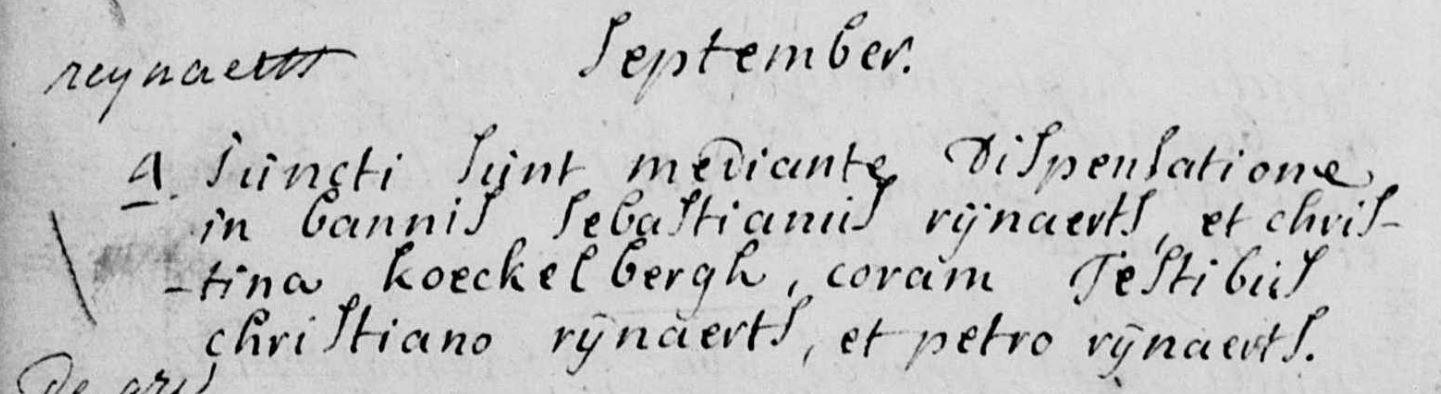 reynaerts September.
4. Juncti sunt mediante Dispensatione
in bannis Sebastianus rÿnaerts, et chris-
-tina koeckelbergh, coram Testibus
christiano rÿnaerts, et petro rÿnaerts.